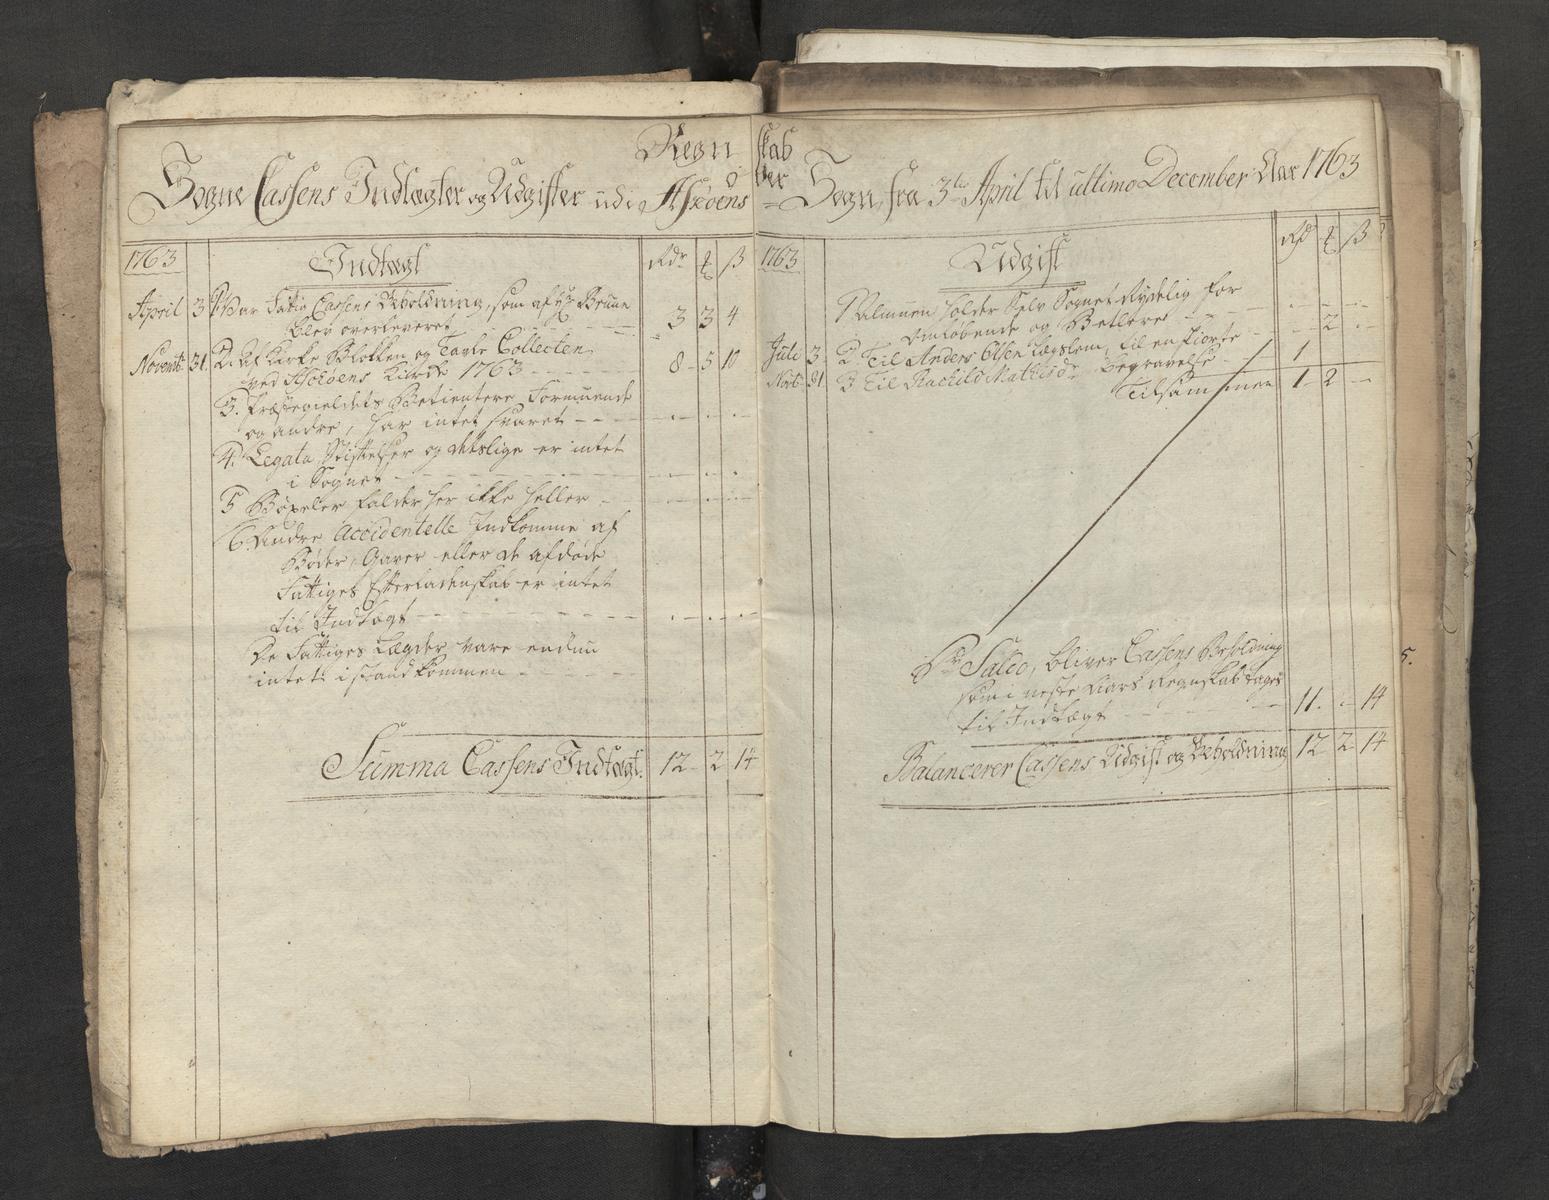 Regnskab
over
Sogne Cassens Indtægter og Udgifter udi Askvens Sogn, fra 3die April til ultimo December Aar 1763
1763
Indtægt
Rdr ß
April 3 1 Var Fattig Cassens Beholdning, som af Hr Bruun
blev overleveret 3 3 4
Novembr 31. 2. Af Kirke Blokken og Tavle Collecten
ved Kirke 1763 8 5 10
3. Præstegieldets Betientere Formuende
og andre, har intet svaret
4. Legata, Stiftelser og deslige er intet
i Sognet
5 Bøxeler falder her ikke heller
6 Andre Accidentelle Indkomme af
Bøder, Gaver eller de afdøde
Fattiges Efterladenskab er intet
til Indtægt
De Fattiges Lægder vare endnu
intet i stand kommen
Summa Cassens Indtægt. 12 2 14
1763
Udgift
Rd ß
1 Almuen holder Selv Sognet Rydelig for
omløbende og Betlere
Juli 3 2 Til Anders Olsen Lægslem, til en Skiorte 2
Novb 31 3 Til Rachild Mathisdr Begravelse 1
Tilsammen 1 2
Pr Saldo, bliver Cassens Beholdning
som i neste Aars Regnskab tages
til Indtægt 11 14
Balancerer Cassens Udgift og Beholdning 12 2 14
5.